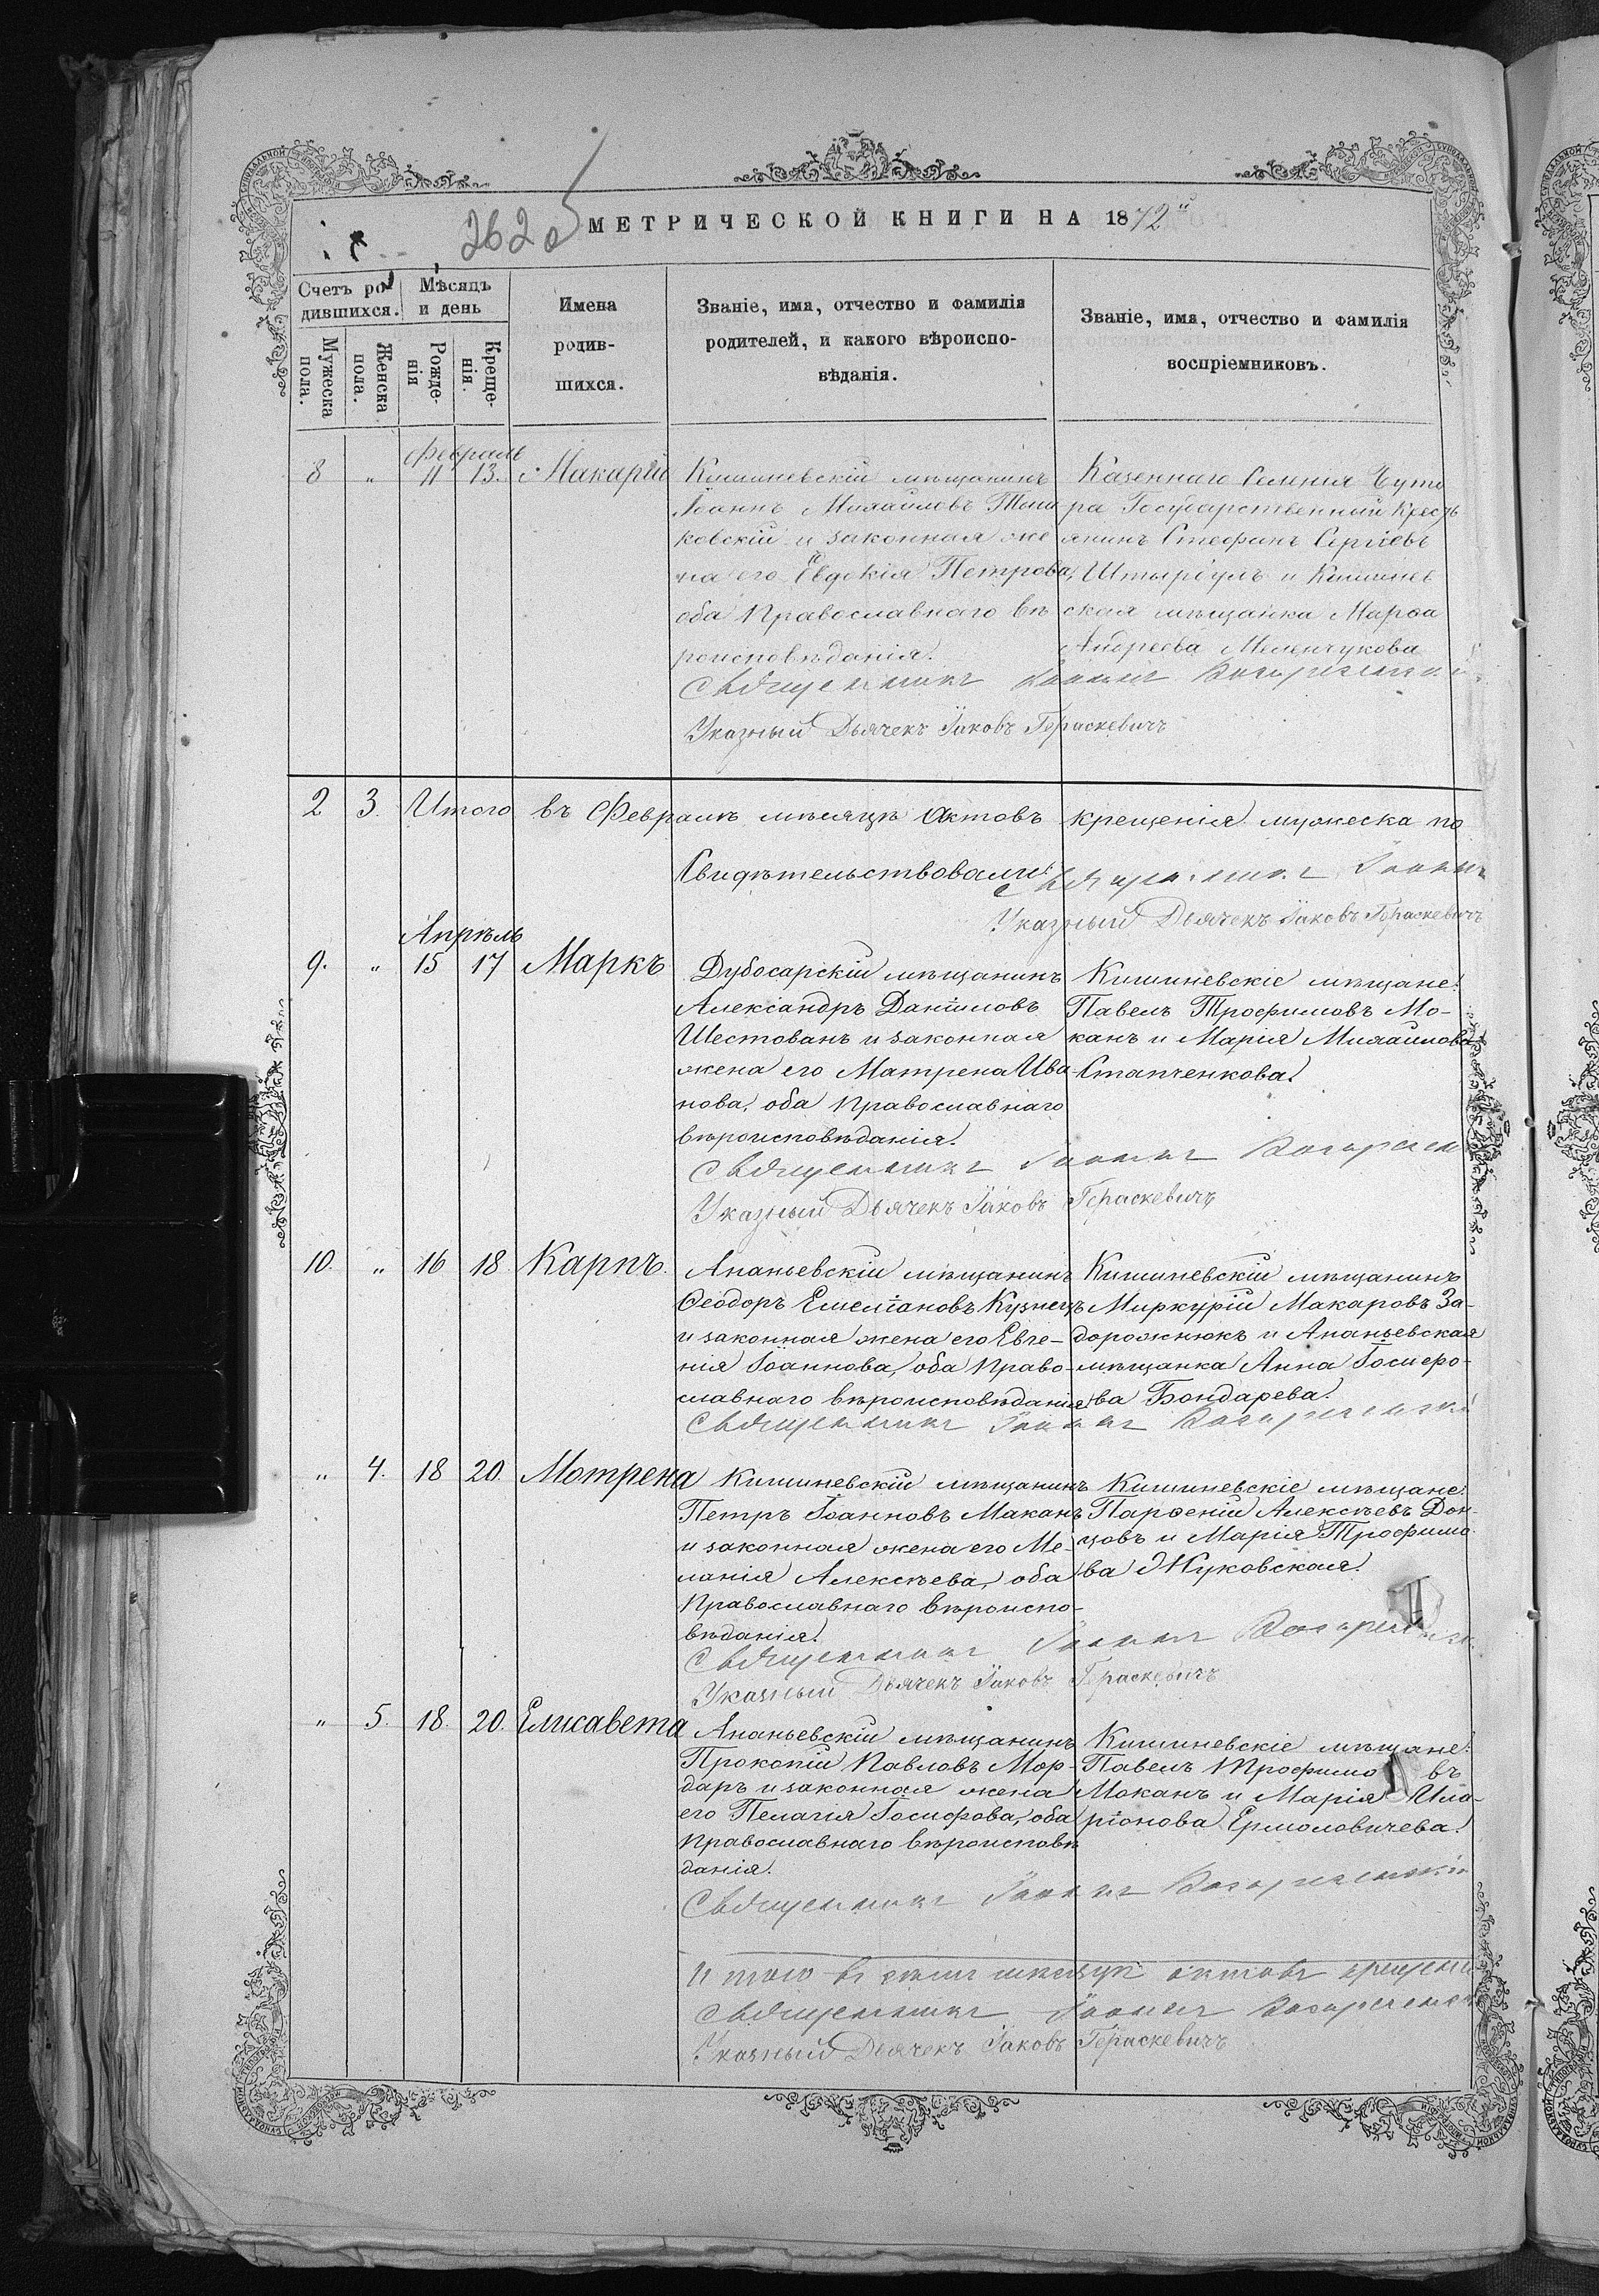 262
МЕТРИЧЕСКОЙ КНИГИ НА 1872
Счетъ ро-
дившихся.
Мѣсяцъ
и день
Мужеска
пола.
Женска
пола.
Рожде-
нія
Креще-
нія.
Имена
родив-
шихся.
Званіе, имя, отчество и фамилія
родителей, и какого вѣроиспо-
вѣданія.
Званіе, имя, отчество и фамилія
воспріемниковъ.
Февраль
8 „ 11 13. Макарій
Кишиневскій мѣщанинъ
Іоаннъ Михайловъ
ковскій и законная же
на его Евдокія Петрова,
оба Православнаго вѣ
роисповѣданія.
Казеннаго Селенія Бути
ра Государственный Кресть
янинъ Стефанъ Сергіевъ
Штыргулъ и Кишинев
ская мѣщанка Марѳа
Андреева Меленчукова
Священникъ Іоаннъ
Указный Дьячекъ Іаковъ Гераскевичъ
2 3. Итого въ Февралѣ мѣсяцѣ актовъ крещенія мужеска по
Свидѣтельствовали: Священникъ Іоаннъ
Указный Дьячекъ Іаковъ Гераскевичъ
Апрѣль
9. „ 15 17 Маркъ
Дубосарскій мѣщанинъ
Александръ Даніиловъ
Шестованъ и законная
жена его Матрена Ива-
нова, оба Православнаго
вѣроисповѣданія.
Кишиневскіе мѣщане:
Павелъ Трофимовъ Мо-
канъ и Марія Михайлова
Стапченкова.
Священникъ Іоаннъ
Указный Дьячекъ Іаковъ Гераскевичъ
10. „ 16 18 Карпъ.
Ананьевскій мѣщанинъ
Ѳеодоръ Емеліановъ Кузнецъ
и законная жена его Евге-
нія Іоаннова, оба Право-
славнаго вѣроисповѣданія.
Кишиневскій мѣщанинъ
Миркурій Макаровъ За-
дорожнюкъ и Ананьевская
мѣщанка Анна Іосифо-
ва Бондарева.
Священникъ Іоаннъ
„ 4. 18 20. Мотрена
Кишиневскій мѣщанинъ
Петръ Іоанновъ Маканъ
и законная жена его Ме-
ланія Алексѣева, оба
Православнаго вѣроиспо-
вѣданія.
Кишиневскіе мѣщане:
Парѳеній Алексѣевъ Дон-
цовъ и Марія Трофимо-
ва Жуковская.
Священникъ Іоаннъ
Указный Дьячекъ Іаковъ Гераскевичъ
„ 5. 18. 20. Елисавета
Ананьевскій мѣщанинъ
Прокопій Павловъ Мор-
даръ и законная жена
его Пелагія Іосифова, оба
Православнаго вѣроисповѣ
данія.
Кишиневскіе мѣщане:
Павелъ Трофимовъ
Моканъ и Марія Ила-
ріонова Ермоловичева.
Священникъ Іоаннъ
Итого въ семъ мѣсяцѣ актовъ крещені
Священникъ Іоаннъ
Указный Дьячекъ Іаковъ Гераскевичъ